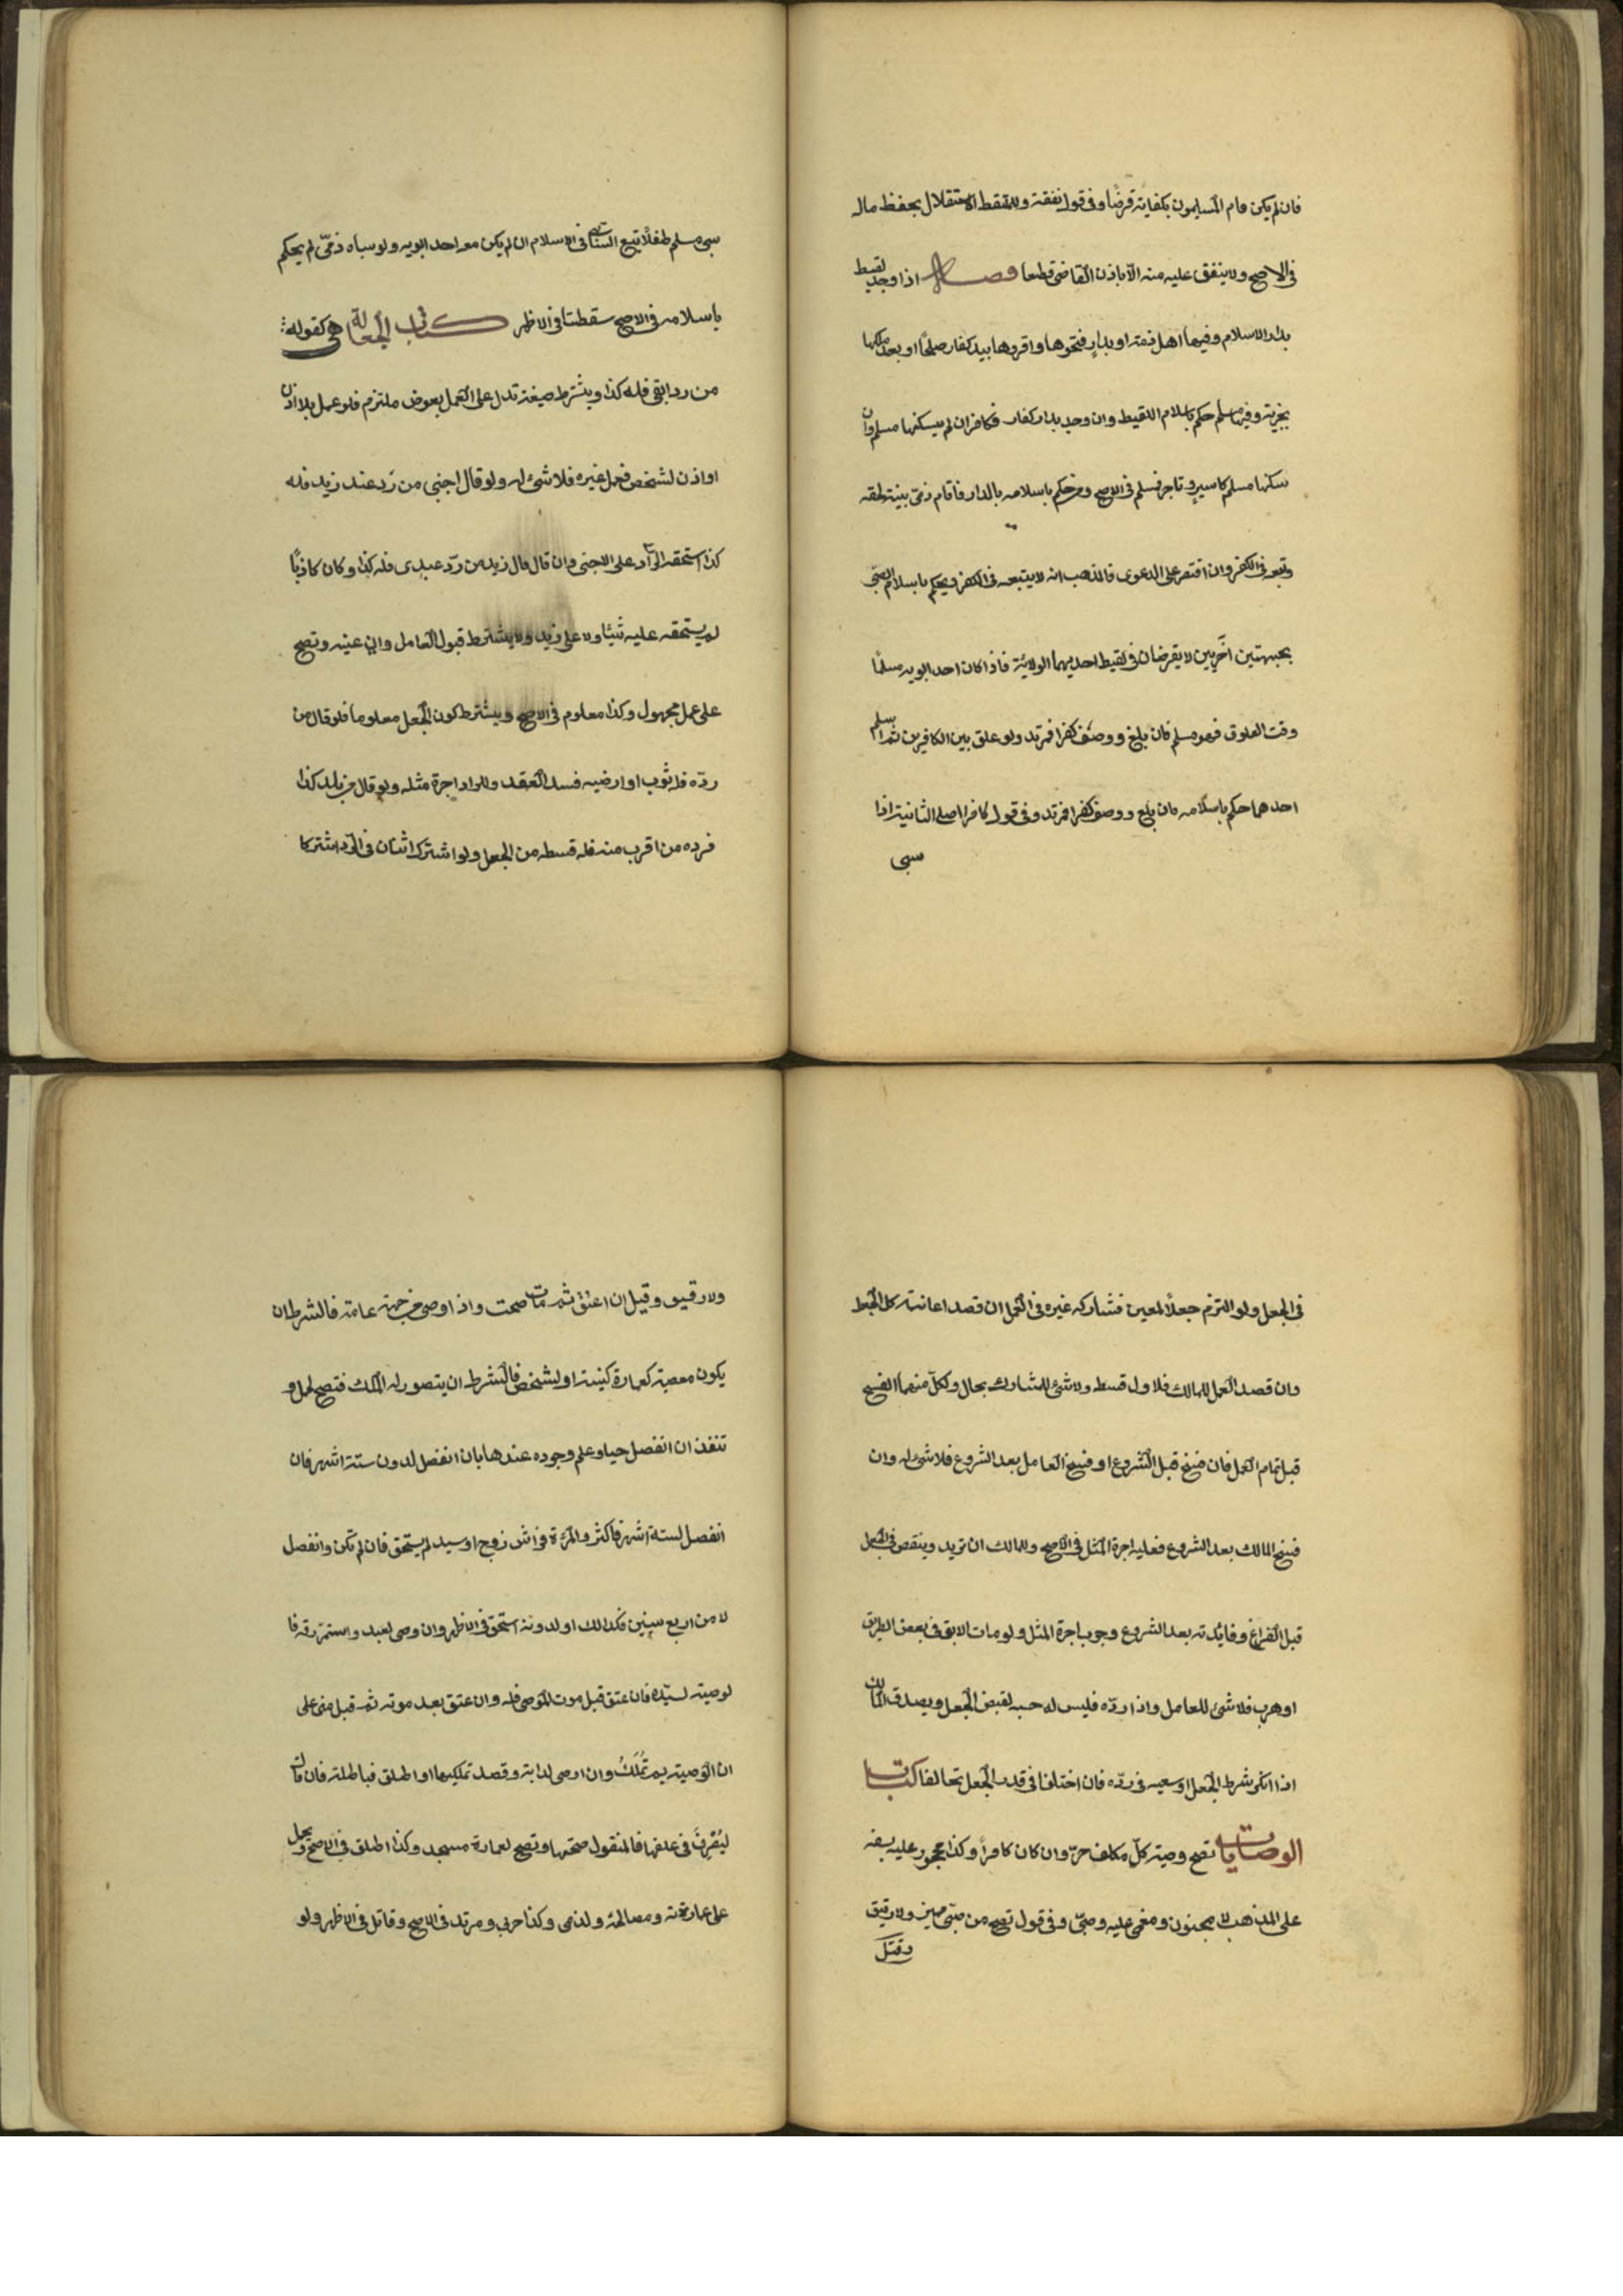 فان لم يكن قام المسلمون بكفايته قرضا وفي قول نفقة وللملتقط الاستقلال بحفظ ماله
في الاصح ولا ينفق عليه منه الا باذن القاضي قطعا فصل اذا وجد لقيط
بدار الاسلام وفيها اهل ذمة او بدار فتحوها واقروها بيد كفار صلحا او بعد ملكها
بجزية وفيها مسلم حكم باسلام اللقيط وان وجد بدار كفار فكافر ان لم يسكنها مسلم وان
سكنها مسلم كاسير وتاجر فمسلم في الاصح ومن حكم باسلامه بالدار فاقام ذمي بينة لحقه
وتبعه في الكفر وان اقتصر على الدعوى فالمذهب انه لا يتبعه في الكفر ويحكم باسلام الصبي
بجهتين اخريين لا يفرضان في لقيط احديهما الولائة فاذا كان احد ابويه مسلما
وقت العلوق فهو مسلم فان بلغ ووصف كفرا فمرتد ولو علق بين الكافرين ثم اسلم
احدهما حكم باسلامه فان بلغ ووصف كفرا فمرتد وفي قول كافر اصلي الثانية اذا
سبى
سبى مسلم طفلا تبع السابي في الاسلام ان لم يكن معه احد ابويه ولو سباه ذمي لم يحكم
باسلامه في الاصح سقطتا في الاظهر كتاب الجعالة هي كقوله
من رد ابقي فله كذا ويشترط صيغة تدل على العمل بعوض ملتزم فلو عمل بلا اذن
او اذن لشخص فعمل غيره فلا شئ له ولو قال اجنبي من رد عبد زيد فله
كذا استحقه الراد على الاجنبي وان قال قال زيد من رد عبدى فله كذا وكان كاذبا
لم يستحقه عليه شيئا ولا على زيد ولا يشترط قبول العامل وان عينه وتصح
على عمل مجهول وكذا معلوم في الاصح ويشترط كون الجعل معلوما فلو قال من
رده فله ثوب او ارضيه فسد العقد وللراد اجرة مثله ولو قال من بلد كذا
فرده من اقرب منه فله قسطه من الجعل ولو اشترك اثنان في الرد اشتركا
في الجعل ولو التزم جعلا لمعين فشاركه غيره في العمل ان قصد اعانته كل الجعل
وان قصد العمل للمالك فلا ول قسطه ولا شئ للمشارك بحال ولكل منهما الفسخ
قبل تمام العمل فان فسخ قبل الشروع او فسخ العامل بعد الشروع فلا شئ له وان
فسخ المالك بعد الشروع فعليه اجرة المثل في الاصح وللمالك ان يزيد وينقص في الجعل
قبل الفراغ وفايدته بعد الشروع وجوب اجرة المثل ولو مات الابق في بعض الطريق
او هرب فلا شئ للعامل واذا رده فليس له حبسه لقبض الجعل ويصدق المالك
اذا انكر شرط الجعل او سعيه في رده فان اختلفا في قدر الجعل تحالفا كتاب
الوصايا تصح وصية كل مكلف حر وان كان كافرا وكذا محجور عليه بسفه
على المذهب لا مجنون ومغمى عليه وصبي وفي قول تصح من صبي مميز ولا رقيق
وقيل
ولا رقيق وقيل ان اعتق ثم مات صحت واذا اوصى من جهة عامة فالشرط ان
يكون معصية كعمارة كنيسة او لشخص فالشرط ان يتصور له الملك فتصح لحمل و
تنفذ ان انفصل حيا وعلم وجوده عندها بان انفصل لدون ستة اشهر فان
انفصل لستة اشهر فاكثر والمرءة فراش زوج او سيد لم يستحق فان لم تكن وانفصل
لا من اربع سنين فكذالك او لدونه استحق في الاظهر وان وصى لعبد واستمر رقه فا
لوصية لسيده فان عتق قبل موت الموصى فله وان عتق بعد موته ثم قبل بنى على
ان الوصية بم تملك وان اوصى لدابة وقصد تمليكها او اطلق فباطلة فان قال
ليصرف في علفها فالمنقول صحتها وتصح لعمارة مسجد وكذا اطلق في الاصح ويحمل
على عمارته ومصالحه ولذمى وكذا حربي ومرتد في الاصح وقاتل في الاظهر ولو